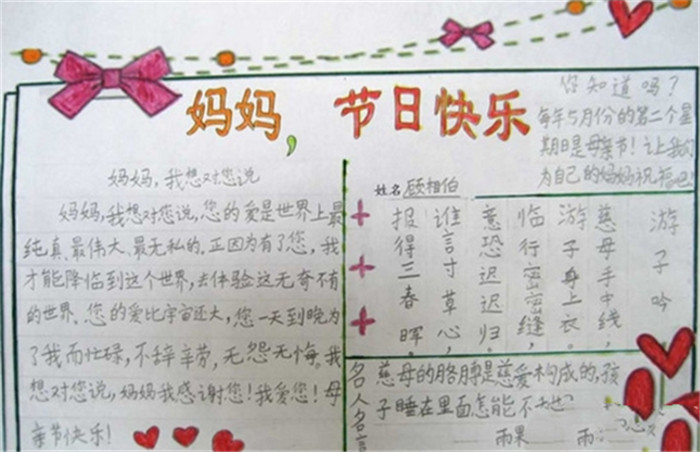 妈妈，节日快乐
你知道吗？
每年5月份的第二个星
期日是母亲节！让我们
为自己的妈妈祝福吧！
妈妈，我想对您说
妈妈，我想对您说，您的爱是世界上最
纯真、最伟大、最无私的。正因为有了您，我
才能降临到这个世界，去体验这无奇不有
的世界。您的爱比宇宙还大，您一天到晚为
了我而忙碌，不辞辛劳，无怨无悔。我
想对您说，妈妈我感谢您！我爱您！母
亲节快乐！
姓名 顾相伯
游子吟
慈母手中线，
游子身上衣。
临行密密缝，
意恐迟迟归。
谁言寸草心，
报得三春晖。
名人名言
慈母的胳膊是慈爱构成的，孩
子睡在里面怎能不
雨果